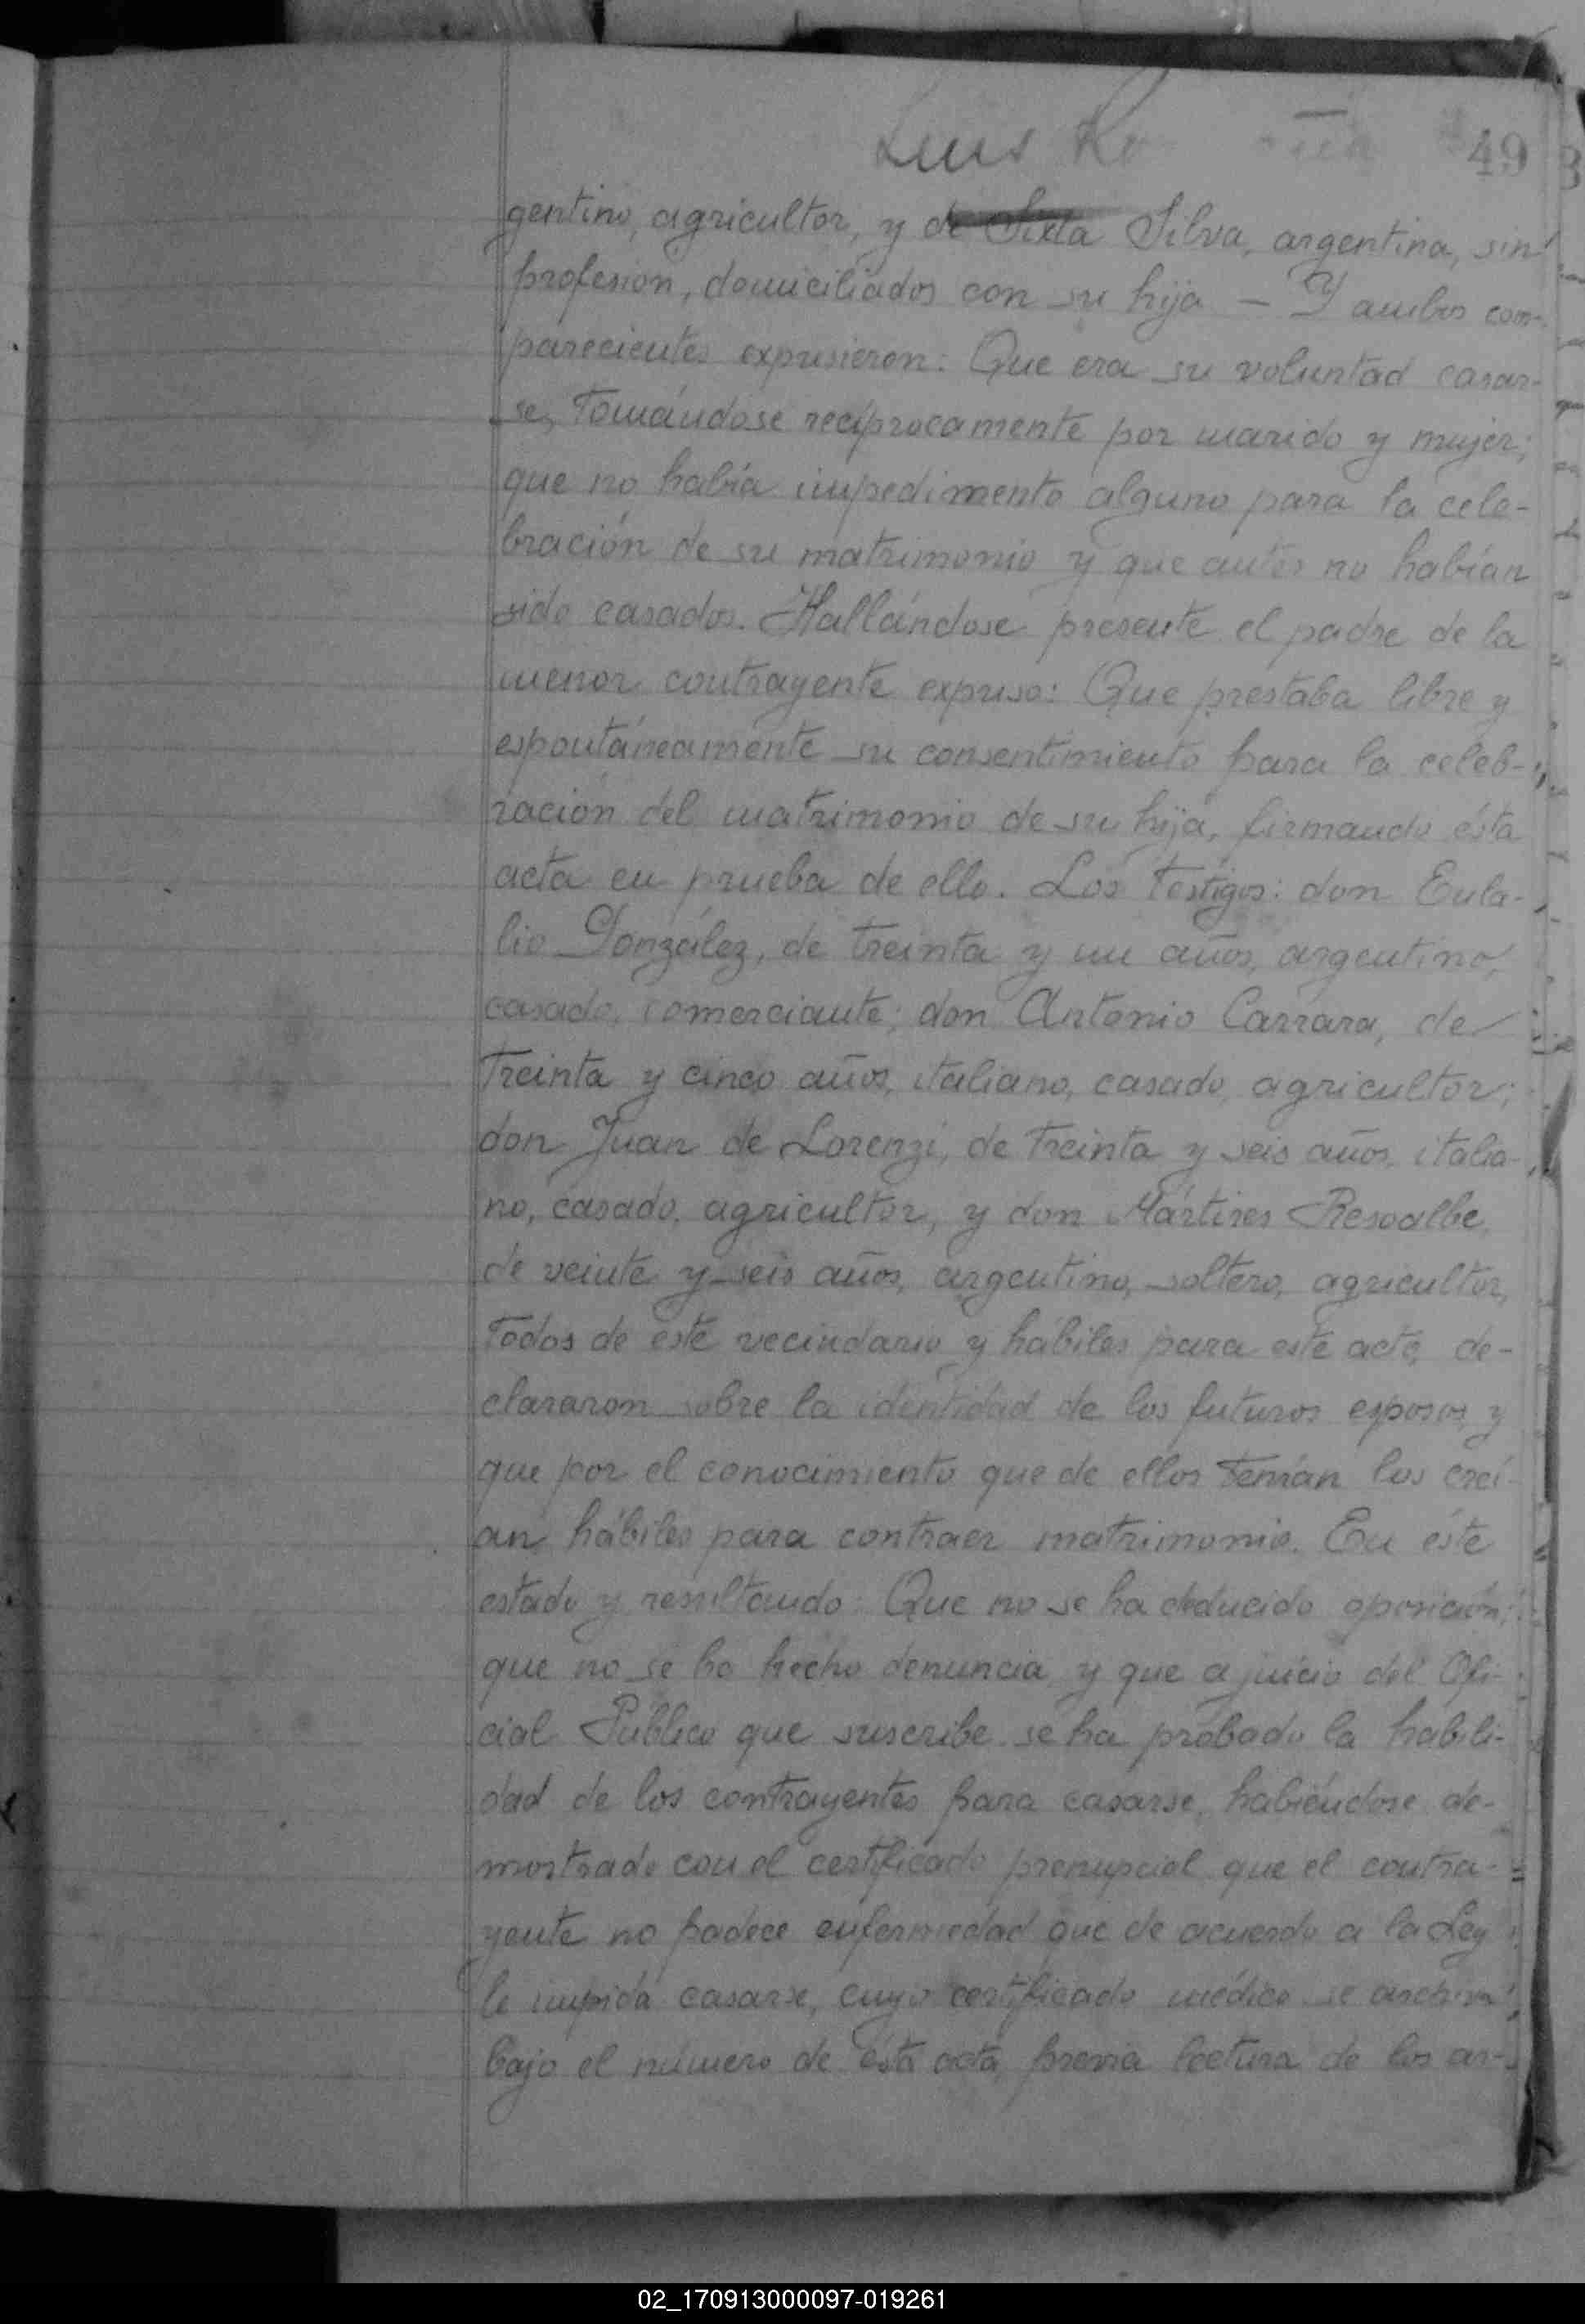 Luis
49
gentino, agricultor, y de Sixta Silva, argentina, sin
profesion, domiciliados con su hija — Y ambos com-
parecientes expusieron: Que era su voluntad casar-
se, tomándose recíprocamente por marido y mujer;
que no había impedimento alguno para la cele-
bración de su matrimonio y que antes no habían
sido casados. Hallándose presente el padre de la
menor contrayente expuso: Que prestaba libre y
espontáneamente su consentimiento para la celeb-
ración del matrimonio de su hija, firmando ésta
acta en prueba de ello. Los testigos: don Eula-
lio González, de treinta y un años, argentino,
casado, comerciante; don Antonio Carrara, de
treinta y cinco años, italiano, casado, agricultor;
don Juan de Lorenzi, de treinta y seis años, italia-
no, casado, agricultor, y don Mártires
de veinte y seis años, argentino, soltero, agricultor,
todos de este vecindario y hábiles para este acto, de-
clararon sobre la identidad de los futuros esposos y
que por el conocimiento que de ellos tenían los creí-
an hábiles para contraer matrimonio. En éste
estado y resultando: Que no se ha deducido oposición;
que no se ha hecho denuncia y que a juicio del Ofi-
cial Público que suscribe se ha probado la habili-
dad de los contrayentes para casarse, habiéndose de-
mostrado con el certificado prenupcial que el contra-
yente no padece enfermedad que de acuerdo a la Ley
le impida casarse, cuyo certificado médico se archiva
bajo el número de ésta acta, previa lectura de los ar-
02_170913000097-019261